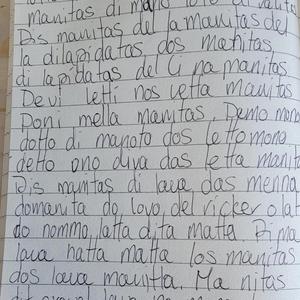 manitas di mano
Dis manitas del la manitas del
la dilapidatas dos manitas
di lapidatas del Ci na manitas
Devi letti nos vetta manitas
Doni mella manitas, Demo mono
dotto di manoto dos lettomono
detto ono diva das letta manit
Dis manitas di lava das menna
domanita do lovo, del ricker olat
do nommo, latta dita matta. Dima
lava hatta matta los manitas
dos lava manitta, Ma nitas